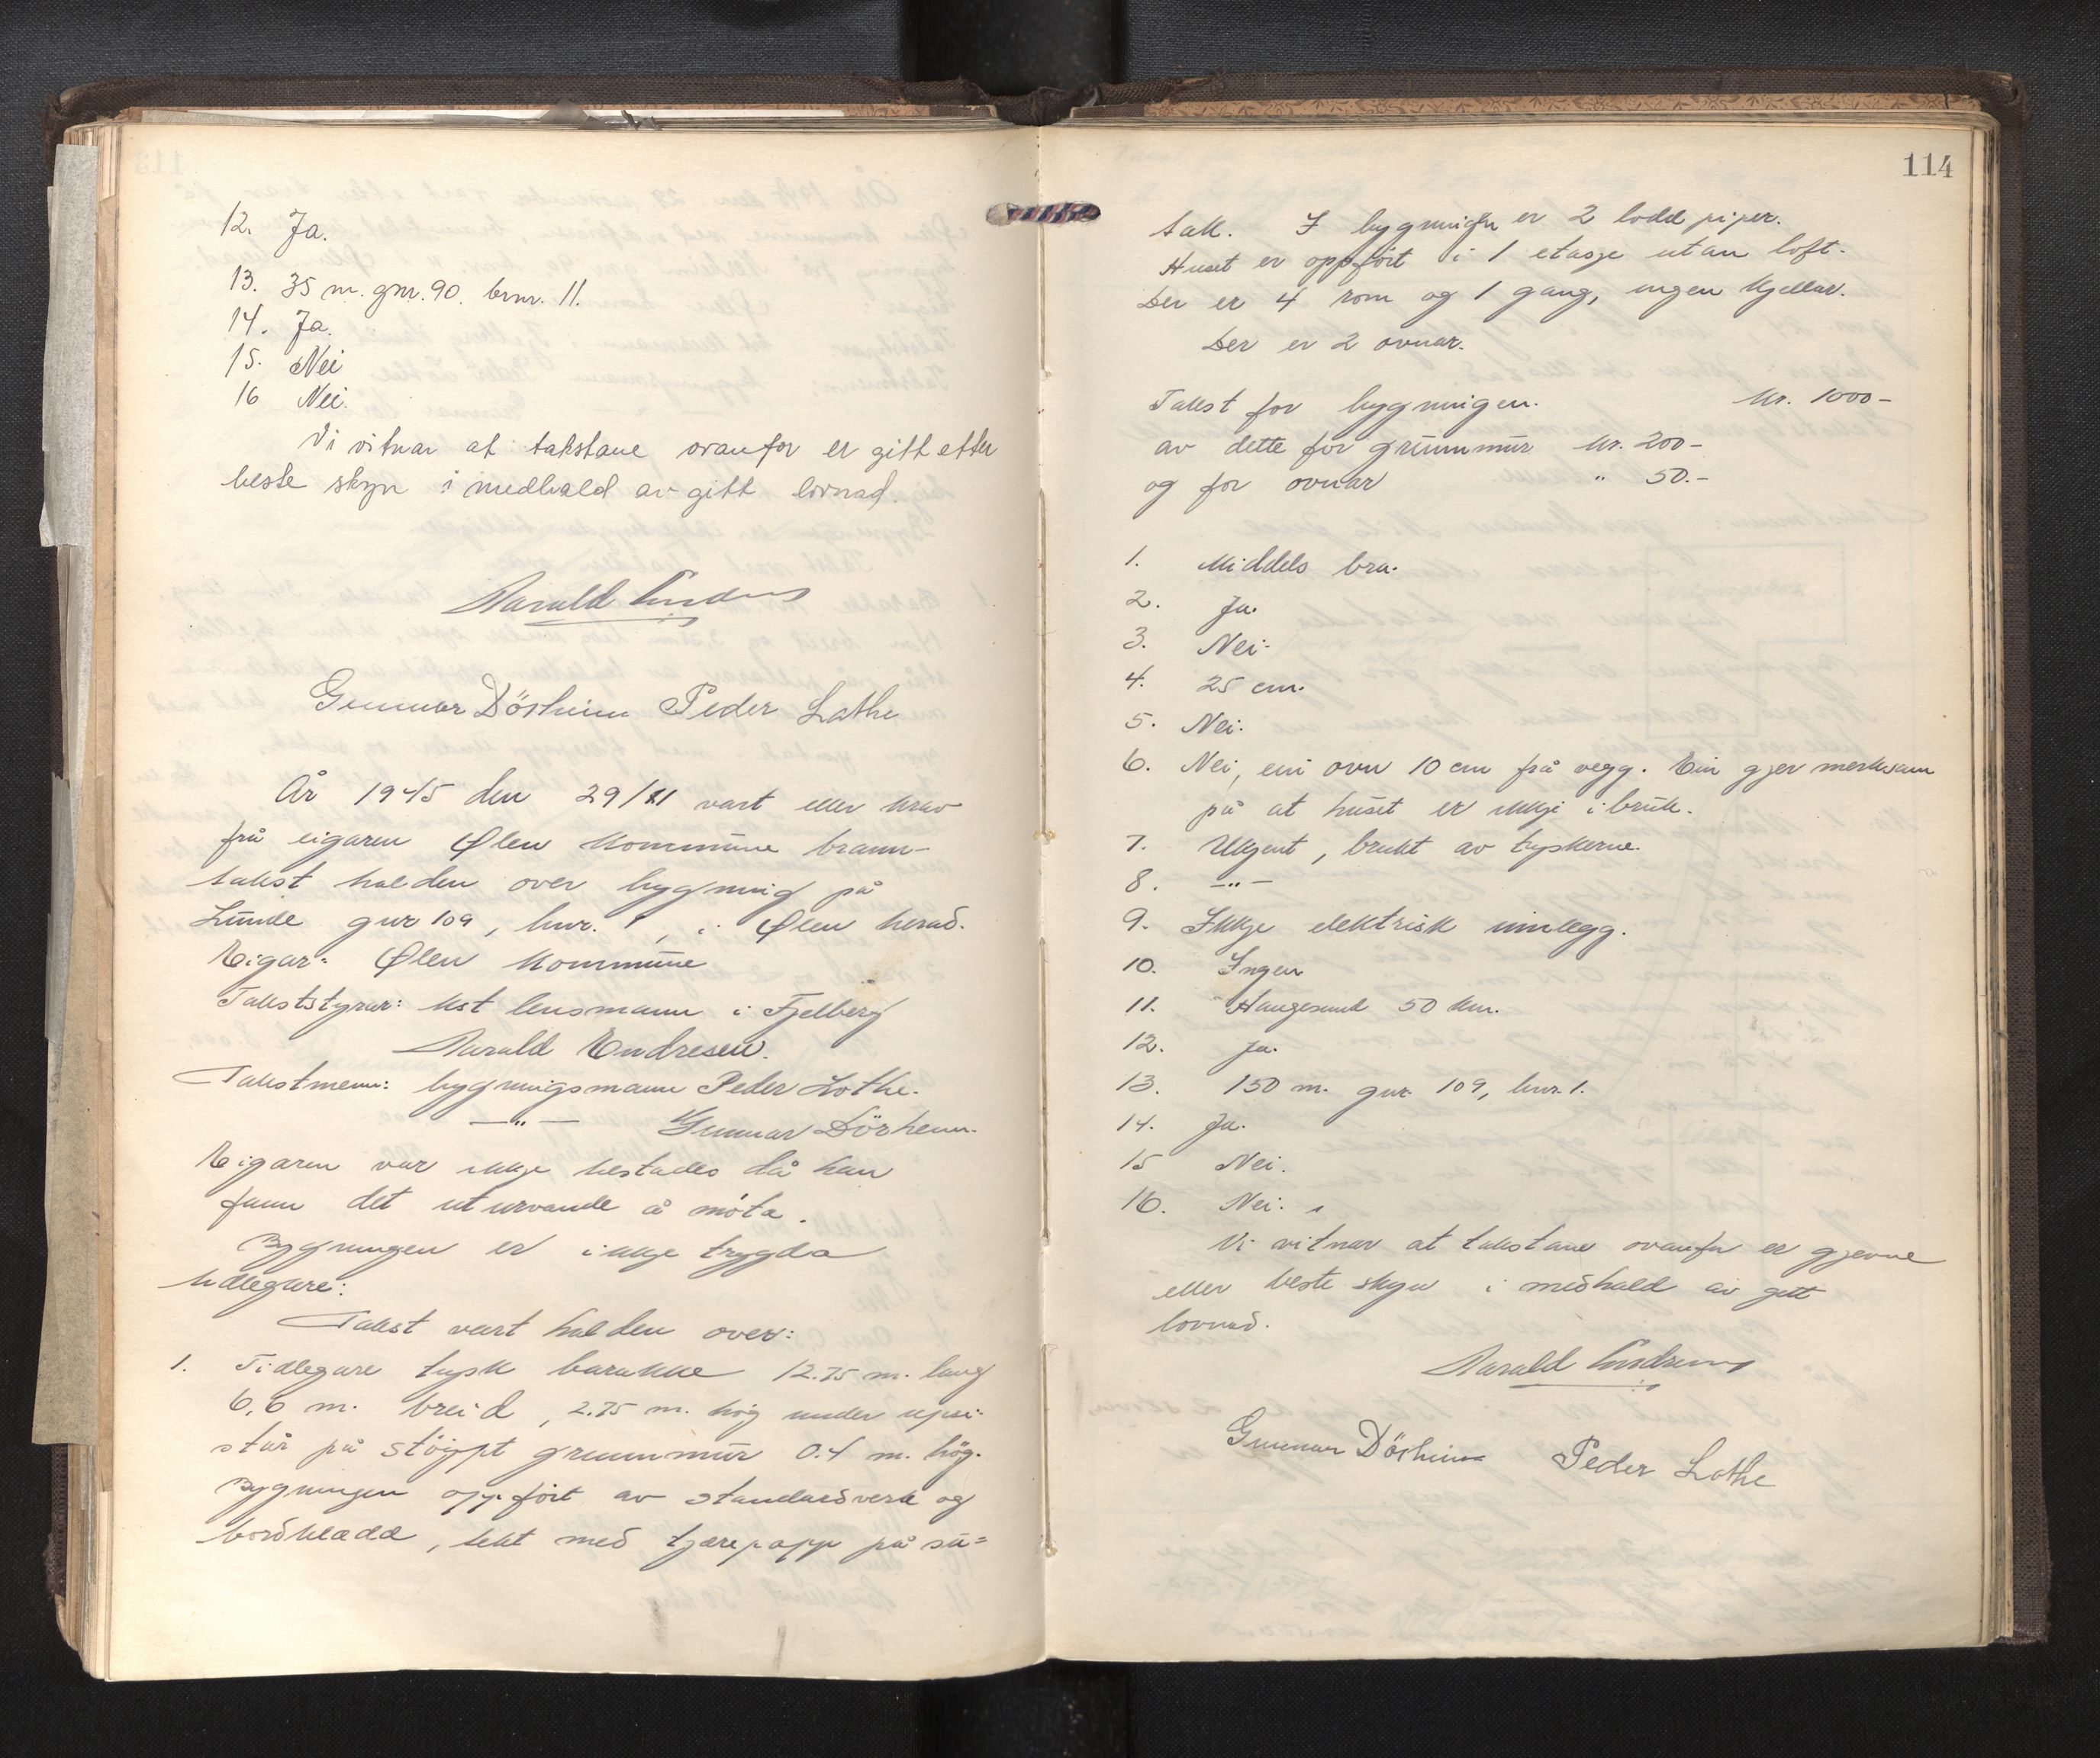 12. Ja.
13. 35 m. gnr. 90. brnr. 11.
14. Ja.
15. Nei
16 Nei.
Vi vitnar at takstane ovanfor er gitt etter
beste skyn i medhald av gitt lovnad.
Harald Endresen
Gunnar Dörheim Peder Lothe
År 1945 den 29/11 vart etter krav
frå eigaren Ølen kommune brann-
takst halden over bygning på
Lunde gnr 109, bnr. 1, i Ølen herad.
Eigar: Ølen kommune
Takststyrar: kst lensmann i Fjelberg
Harald Endresen.
Takstmenn: bygningsmann Peder Lothe.
—"— Gunnar Dörheim.
Eigaren var ikkje tilstades då han
fann det uturvande å møta.
Bygningen er ikkje trygda
tidlegare:
Takst vart halden over:
1. Tidlegare tysk barakke 12.75 m. lang
6,6 m. breid, 2.75 m. høg under upsi-
står på støypt grunnmur 0.4 m. høg.
Bygningen oppført av standardverk og
bordkledd, tekt med tjærepapp på su=
114
tak. I bygningen er 2 lodd piper.
Huset er oppført i 1 etasje utan loft.
Der er 4 rom og 1 gang, ingen kjellar.
Der er 2 ovnar.
Takst for bygningen. kr. 1000-
av dette for grunnmur kr. 200-
og for ovnar " 50.-
1. Middels bra.
2. Ja.
3. Nei.
4. 25 cm.
5. Nei.
6. Nei, ein ovn 10 cm frå vegg. Ein gjer merksam
på at huset er ikkje i bruk.
7. Ukjent, brukt av tyskerne.
8. —"—
9. Ikkje elektrisk innlegg.
10. Ingen
11. Haugesund 50 km.
12. Ja.
13. 150 m. gnr. 109, bnr. 1.
14. Ja.
15 Nei.
16. Nei.
Vi vitnar at takstane ovanfor er gjevne
etter beste skyn i medhald av gitt
lovnad.
Harald Endresen
Gunnar Dörheim Peder Lothe